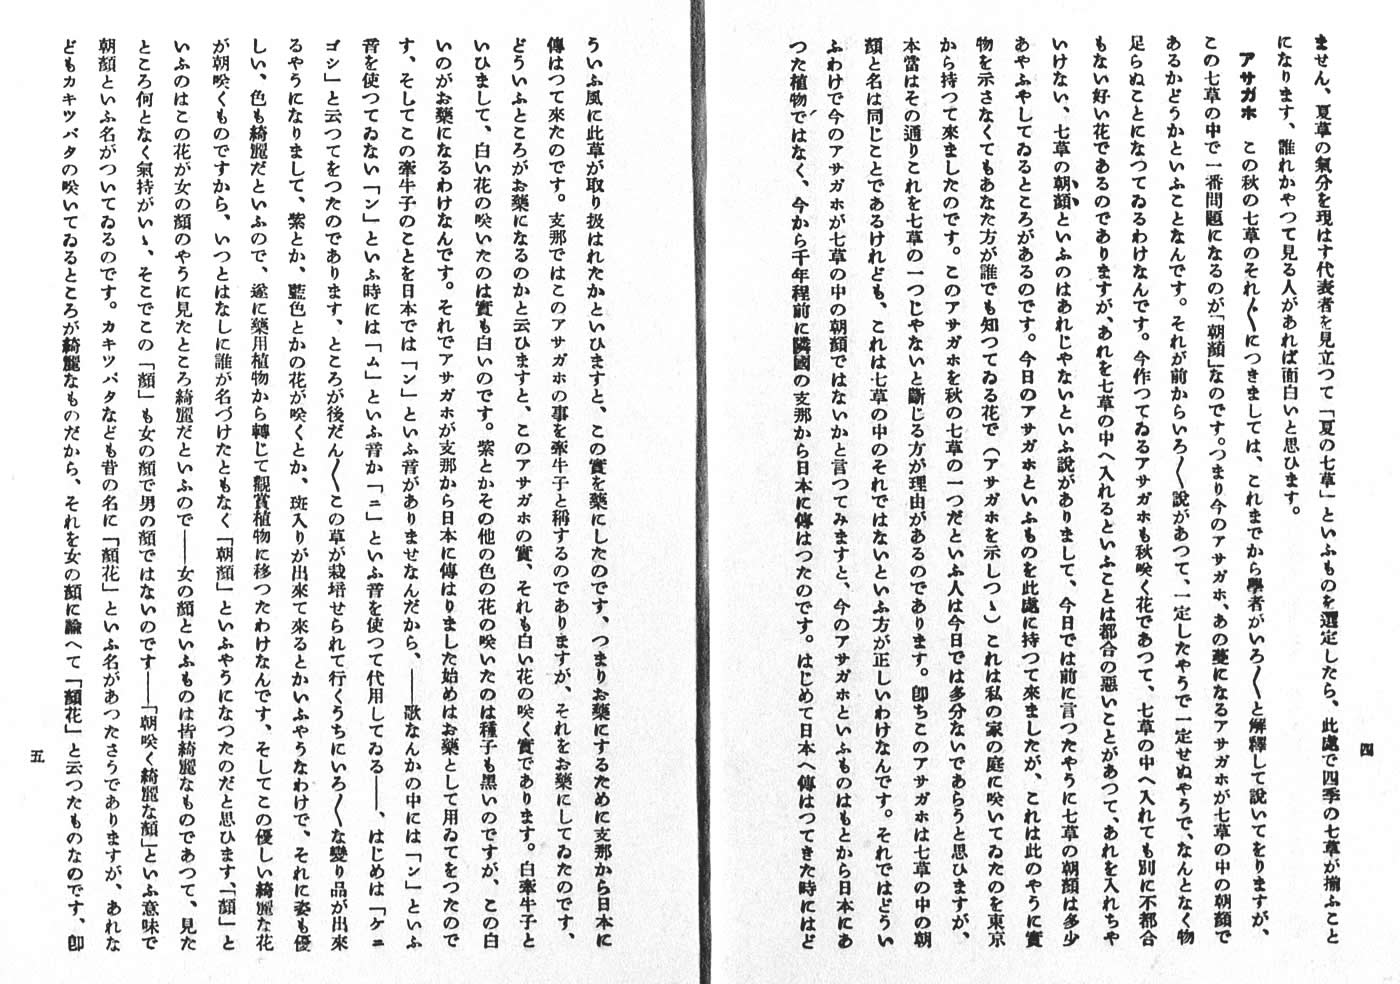 ません、夏草の氣分を現はす代表者を見立つて「夏の七草」といふものを選定したら、此處で四季の七草が揃ふこと
になります、誰れかやつて見る人があれば面白いと思ひます。
アサガホ　この秋の七草のそれ〳〵につきましては、これまでから學者がいろ〳〵と解釋して説いてをりますが、
この七草の中で一番問題になるのが「朝顔」なのです。つまり今のアサガホ、あの蔓になるアサガホが七草の中の朝顔で
あるかどうかといふことなんです。それが前からいろ〳〵説があつて、一定したやうで一定せぬやうで、なんとなく物
足らぬことになつてゐるわけなんです。今作つてゐるアサガホも秋咲く花であつて、七草の中へ入れても別に不都合
もない好い花であるのでありますが、あれを七草の中へ入れるといふことは都合の惡いことがあつて、あれを入れちや
いけない、七草の朝顔といふのはあれじやないといふ説がありまして、今日では前に言つたやうに七草の朝顔は多少
あやふやしてゐるところがあるのです。今日のアサガホといふものを此處に持つて來ましたが、これは此のやうに實
物を示さなくてもあなた方が誰でも知つてゐる花で（アサガホを示しつゝ）これは私の家の庭に咲いてゐたのを東京
から持つて來ましたのです。このアサガホを秋の七草の一つだといふ人は今日では多分ないであらうと思ひますが、
本當はその通りこれを七草の一つじやないと斷じる方が理由があるのであります。卽ちこのアサガホは七草の中の朝
顔と名は同じことであるけれども、これは七草の中のそれではないといふ方が正しいわけなんです。それではどうい
ふわけで今のアサガホが七草の中の朝顔ではないかと言つてみますと、今のアサガホといふものはもとから日本にあ
つた植物ではなく、今から千年程前に隣國の支那から日本に傳はつたのです。はじめて日本へ傳はつてきた時にはど
四
ういふ風に此草が取り扱はれたかといひますと、この實を藥にしたのです、つまりお藥にするために支那から日本に
傳はつて來たのです。支那ではこのアサガホの事を牽牛子と稱するのでありますが、それをお藥にしてゐたのです、
どういふところがお藥になるのかと云ひますと、このアサガホの實、それも白い花の咲く實であります。白牽牛子と
いひまして、白い花の咲いたのは實も白いのです。紫とかその他の色の花の咲いたのは種子も黒いのですが、この白
いのがお藥になるわけなんです。それでアサガホが支那から日本に傳はりました始めはお藥として用ゐてをつたので
す、そしてこの牽牛子のことを日本では「ン」といふ音がありませなんだから、――歌なんかの中には「ン」といふ
音を使つてゐない「ン」といふ時には「ム」といふ音か「ニ」といふ音を使つて代用してゐる――、はじめは「ケニ
ゴシ」と云つてをつたのであります、ところが後だん〳〵この草が栽培せられて行くうちにいろ〳〵な變り品が出來
るやうになりまして、紫とか、藍色とかの花が咲くとか、斑入りが出來て來るとかいふやうなわけで、それに姿も優
しい、色も綺麗だといふので、遂に藥用植物から轉じて觀賞植物に移つたわけなんです、そしてこの優しい綺麗な花
が朝咲くものですから、いつとはなしに誰が名づけたともなく「朝顔」といふやうになつたのだと思ひます、「顔」と
いふのはこの花が女の顔のやうに見たところ綺麗だといふので――女の顔といふものは皆綺麗なものであつて、見た
ところ何となく氣持がいゝ、そこでこの「顔」も女の顔で男の顔ではないのです――「朝咲く綺麗な顔」といふ意味で
朝顔といふ名がついてゐるのです。カキツバタなども昔の名に「顔花」といふ名があつたさうでありますが、あれな
どもカキツバタの咲いてゐるところが綺麗なものだから、それを女の顔に譣へて「顔花」と云つたものなのです、卽
五